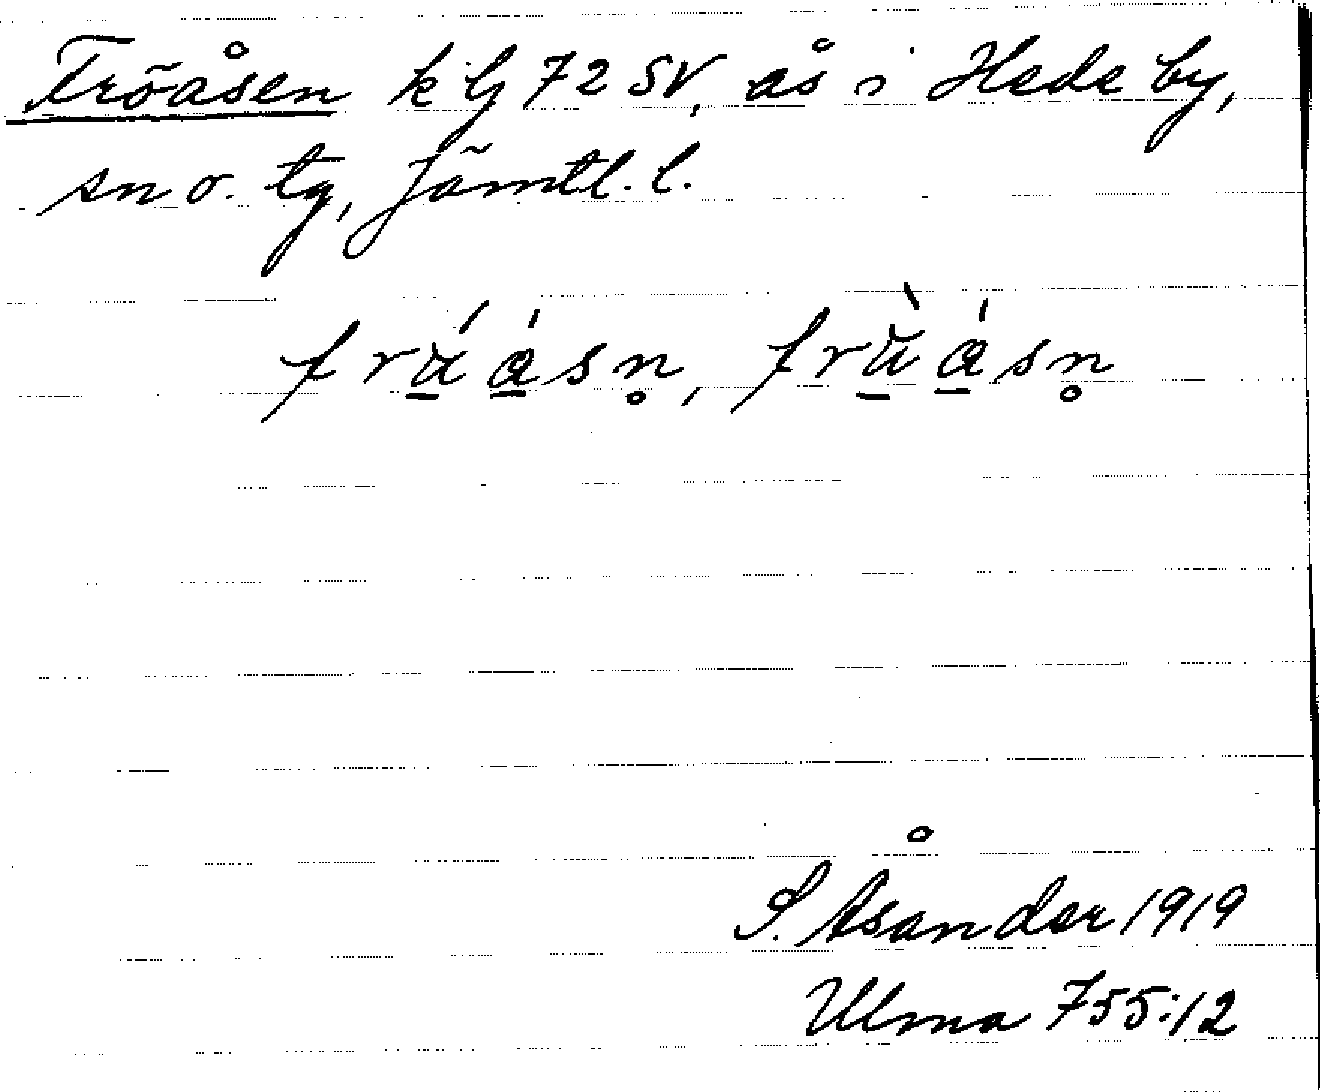 Fröåsen k lj 72 SV, ås i Hede by,
sn o. tg, Jämtl. l.
frä́ásn̥, frä̀ásn̥
S. Åsander 1919
Ulma 755:12